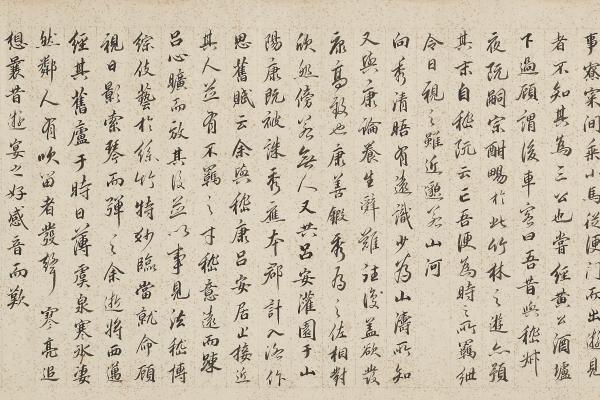 事寮寀間乘小馬從便門而出遊見
者不知其為三公也嘗經黃公酒壚
下過顧謂後車客曰吾昔與嵇叔
夜阮嗣宗酣暢於此竹林之遊亦預
其末自嵇阮云亡吾便為時之所羈紲
今日視之雖近邈若山河
向秀清晤有遠識少為山濤所知
又與康論養生辭難往復蓋欲發
康高致也康善鍛秀為之佐相對
欣然傍若無人又共呂安灌園于山
陽康既被誅秀應本郡計入洛作
思舊賦云余與嵇康呂安居止接近
其人並有不羈之才嵇意遠而疎
呂心曠而放其後並以事見法嵇博
綜伎藝於絲竹特妙臨當就命顧
視日影索琴而彈之余逝將西邁
經其舊廬于時日薄虞泉寒冰淒
然鄰人有吹笛者發聲寥亮追
想曩昔遊宴之好感音而歎